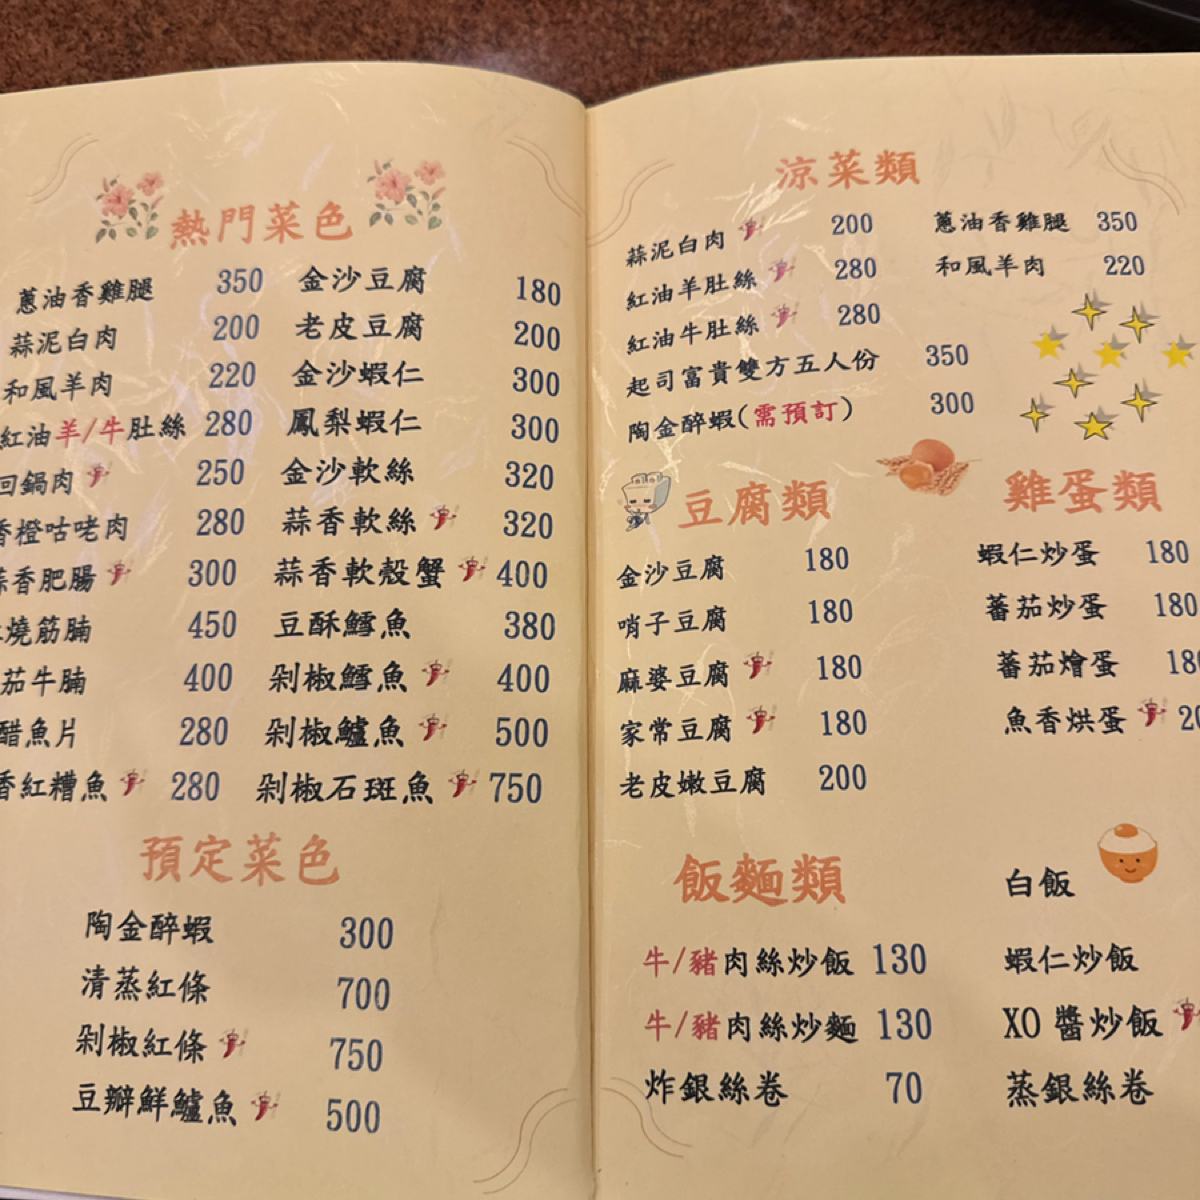 熱門菜色
蔥油香雞腿 350
蒜泥白肉 200
和風羊肉 220
紅油羊/牛肚絲 280
回鍋肉 250
香橙咕咾肉 280
蒜香肥腸 300
燒筋腩 450
茄牛腩 400
醋魚片 280
香紅糟魚 280
金沙豆腐 180
老皮豆腐 200
金沙蝦仁 300
鳳梨蝦仁 300
金沙軟絲 320
蒜香軟絲 320
蒜香軟殼蟹 400
豆酥鱈魚 380
剁椒鱈魚 400
剁椒鱸魚 500
剁椒石斑魚 750
預定菜色
陶金醉蝦 300
清蒸紅條 700
剁椒紅條 750
豆瓣鮮鱸魚 500
涼菜類
蒜泥白肉 200
紅油羊肚絲 280
紅油牛肚絲 280
起司富貴雙方五人份 350
陶金醉蝦(需預訂) 300
蔥油香雞腿 350
和風羊肉 220
豆腐類
金沙豆腐 180
哨子豆腐 180
麻婆豆腐 180
家常豆腐 180
老皮嫩豆腐 200
雞蛋類
蝦仁炒蛋 180
蕃茄炒蛋 180
蕃茄燴蛋 180
魚香烘蛋 20
飯麵類
牛/豬肉絲炒飯 130
牛/豬肉絲炒麵 130
炸銀絲卷 70
白飯
蝦仁炒飯
XO 醬炒飯
蒸銀絲卷